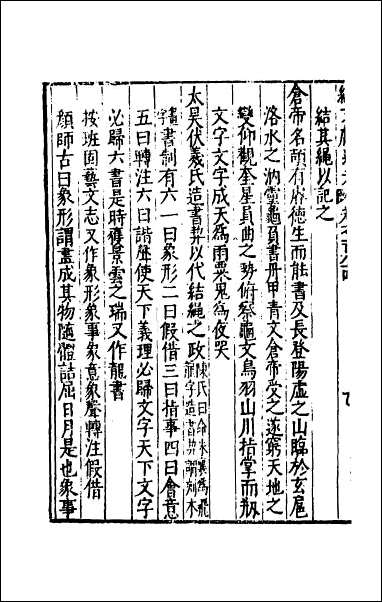 結其繩以記之
倉帝名頡有睿德生而能書及長登陽虛之山臨於玄扈
洛水之汭靈龜負書丹甲青文倉帝受之遂窮天地之
變仰觀奎星員曲之勢俯察龜文鳥羽山川指掌而
文字文字成天為雨粟鬼為夜哭
太昊伏羲氏造書契以代結繩之政陳氏曰命朱襄為飛龍字造書契謂刻木
畫書制有六一曰象形二曰假借三曰指事四曰會意
五曰轉注六曰諧聲使天下義理必歸文字天下文字
必歸六書是時獲景雲之瑞又作龍書
按班固藝文志又作象形象事象意象聲轉注假借
顏師古曰象形謂畫成其物隨體詰屈日月是也象事